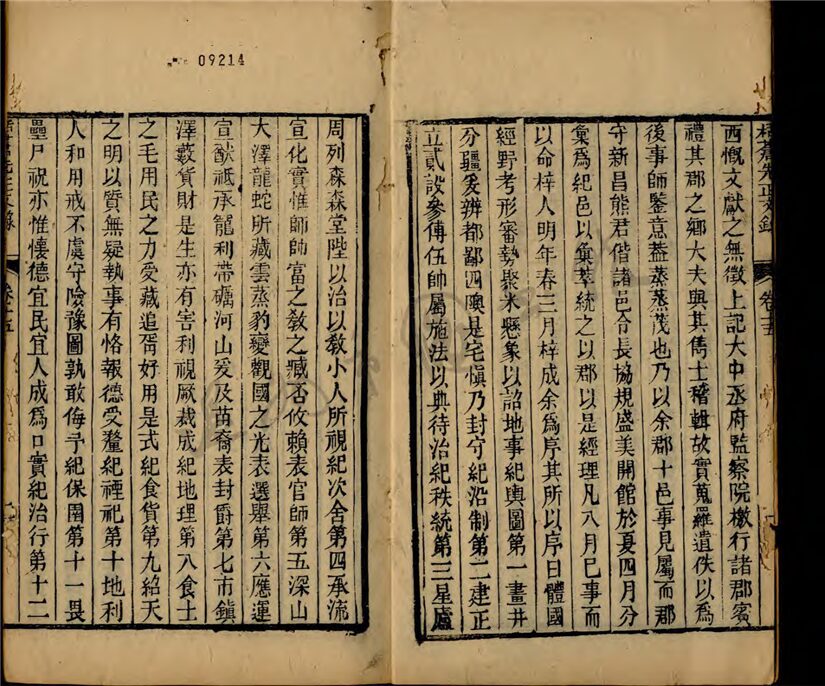 09214
栝蒼先正文錄 卷十五
西慨文獻之無徵上記大中丞府監察院檄行諸郡賓
禮其郡之鄉大夫與其雋士稽輯故實蒐羅遺佚以爲
後事師鑒意葢蒸蒸茂也乃以余郡十邑事見屬而郡
守新昌熊君偕諸邑令長協規盛美開館於夏四月分
彙爲紀邑以彙萃統之以郡以是經理凡八月巳事而
以命梓人明年春三月梓成余爲序其所以序曰體國
經野考形審勢聚米懸象以詔地事紀輿圖第一畫井
分疆爰辨都鄙四隩是宅愼乃封守紀沿制第二建正
立貳設參傅伍帥屬施法以典待治紀秩統第三星廬
周列森森堂陛以治以敎小人所視紀次舍第四承流
宣化實惟師師富之敎之臧否攸賴表官師第五深山
大澤龍蛇所藏雲蒸豹變觀國之光表選舉第六應運
宣猷祗承寵利帶礪河山爰及苗裔表封爵第七市鎮
澤藪貨財是生亦有害利視厥裁成紀地理第八食土
之毛用民之力愛藏追胥好用是式紀食貨第九紹天
之明以質無疑執事有恪報德受釐紀禋祀第十地利
人和用戒不虞守險豫圖孰敢侮予紀保圉第十一畏
壘尸祝亦惟懐德宜民宜人成爲口實紀治行第十二
卷十五